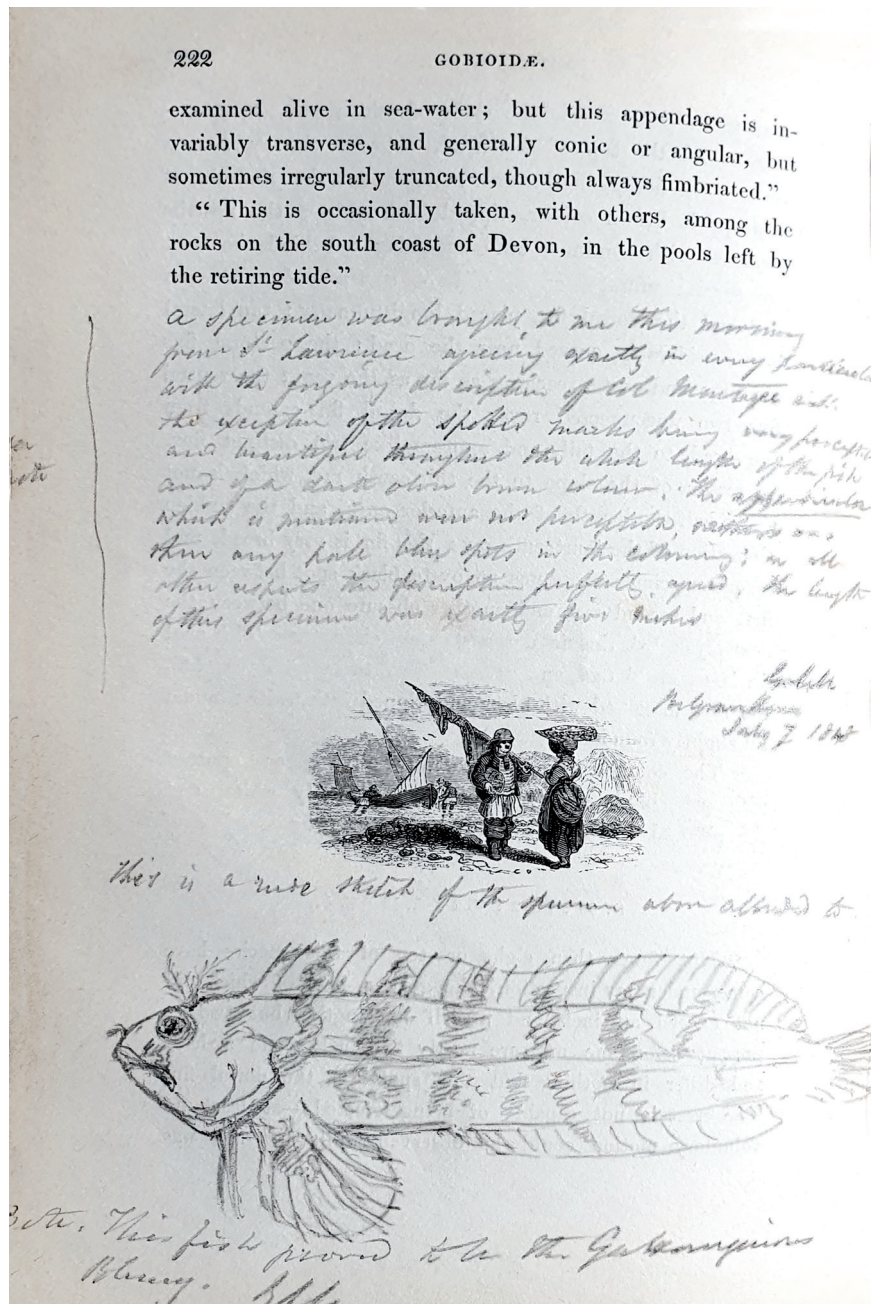 222
GOBIOIDÆ.
examined alive in sea-water; but this appendage is in-
variably transverse, and generally conic or angular, but
sometimes irregularly truncated, though always fimbriated.”
“ This is occasionally taken, with others, among the
rocks on the south coast of Devon, in the pools left by
the retiring tide.”
A specimen was brought to me this morning
from St Lawrence agreeing exactly in every particular
with the forgoing description of Col Montague
the exception of the spotted marks being very perceptible
and beautiful throughout the whole length of the fish
and of a dark olive brown colour. The
which is mentioned were not perceptible
were any pale blue spots in the colouring; in all
other respects the description perfectly agreed, the length
of this specimen was exactly five inches
July 7 1848
This is a rude sketch of the specimen above alluded to
This fish proved to be the
Blenny.